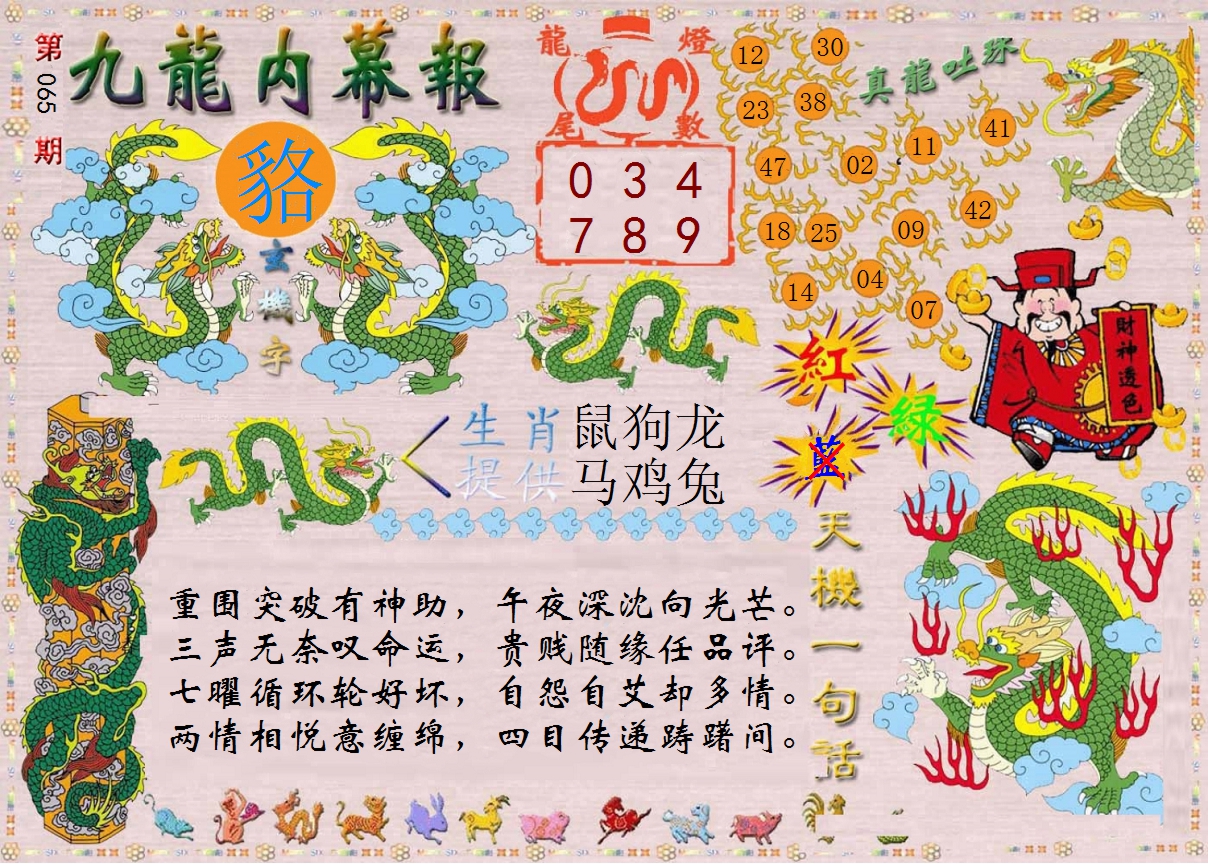 第065期
九龍内幕報
貉
玄機字
龍燈
尾數
0 3 4
7 8 9
真龍吐珠
12 30
23 38
47 02 11 41
18 25 09 42
14 04 07
財神透色
紅
綠
藍
生肖 鼠狗龙
提供 马鸡兔
天機一句话
重围突破有神助，午夜深沈向光芒。
三声无奈叹命运，贵贱随缘任品评。
七曜循环轮好坏，自怨自艾却多情。
两情相悦意缠绵，四目传递踌躇间。